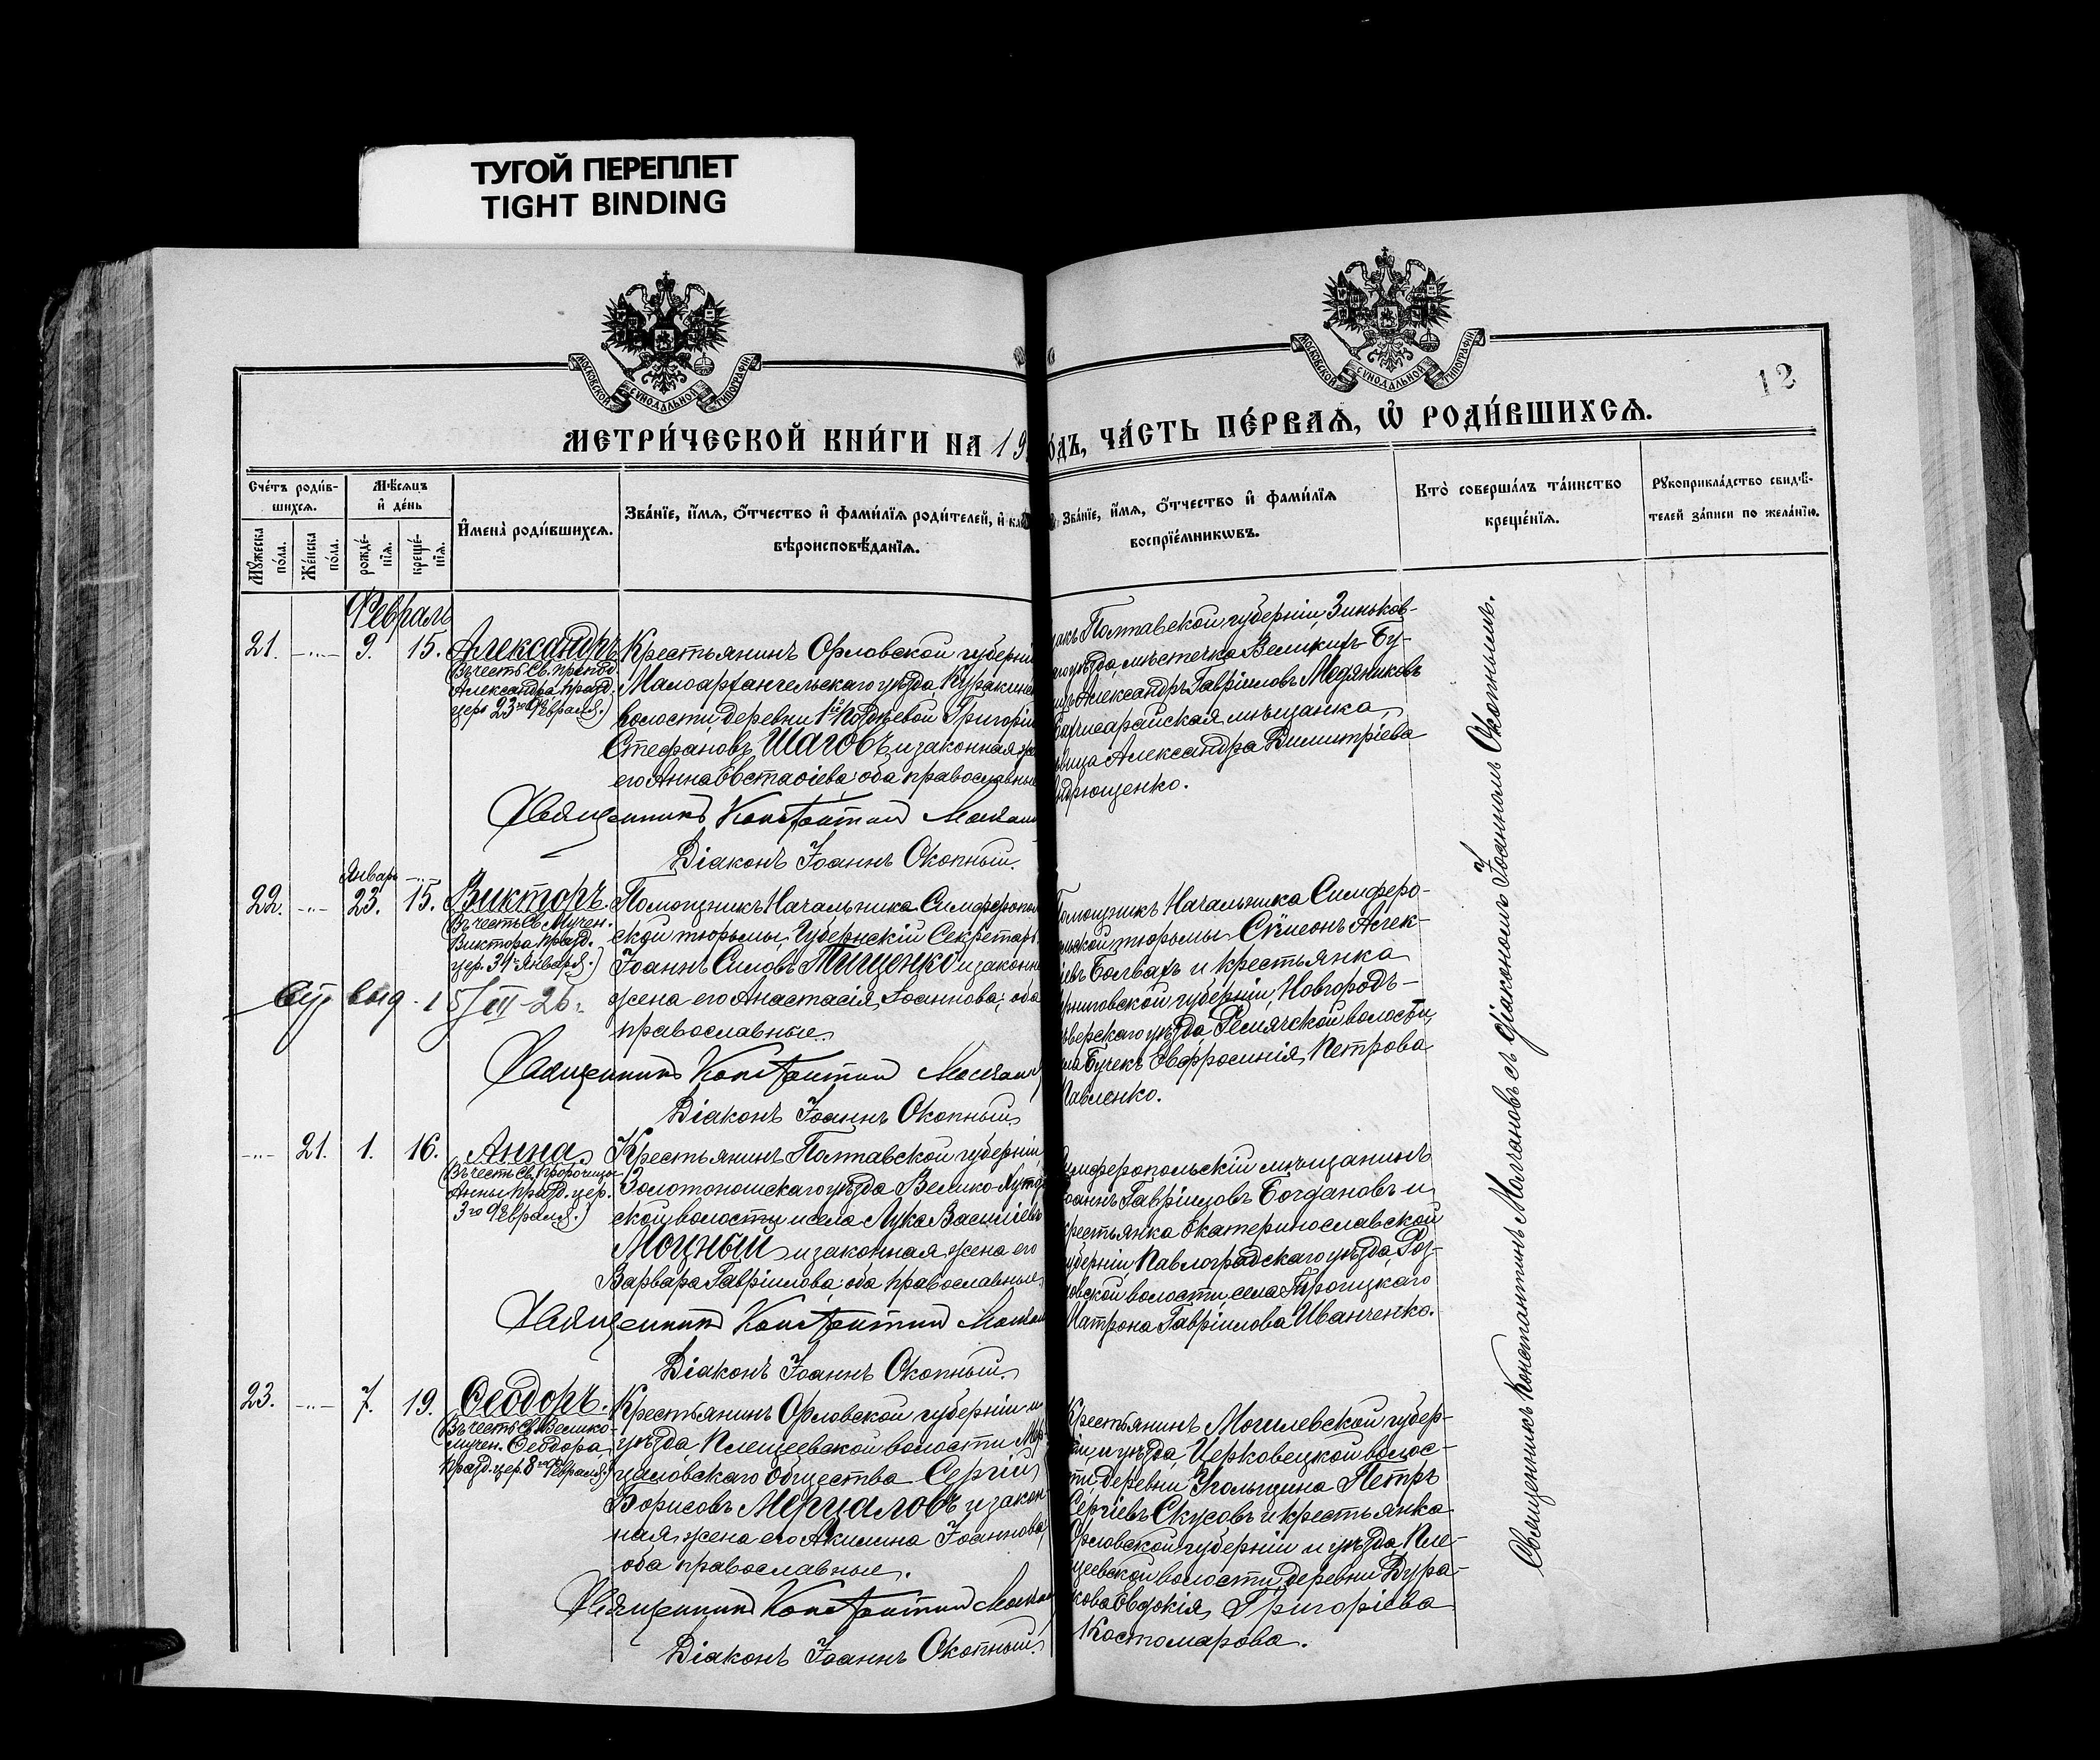 ТУГОЙ ПЕРЕПЛЕТ
TIGHT BINDING
МОСКОВСКОЙ СѴНОДАЛЬНОЙ ТИПОГРАФІИ
МОСКОВСКОЙ СѴНОДАЛЬНОЙ ТИПОГРАФІИ
12
МЕТРИ́ЧЕСКОЙ КНИ́ГИ НА 19
ОДЪ, ЧА́СТЬ ПЕ́РВАѦ, Ѡ РОДИ́ВШИХСѦ.
Сче́тъ роди́в-
шихсѧ.
Мѣ́сѧцъ
и де́нь
Мꙋ́жеска по́ла.
Же́нска по́ла.
рожде́-
нїѧ.
креще́-
нїѧ.
Имена̀ роди́вшихсѧ.
Зва́нїе, и́мѧ, ѻ́тчество и фами́лїѧ роди́телей, и как
вѣроисповѣ́данїѧ.
Зва́нїе, и́мѧ, ѻ́тчество и фами́лїѧ
воспрїе́мникѡвъ.
Кто̀ соверша́лъ та́инство
креще́нїѧ.
Рꙋкоприкла́дство свидѣ́-
телей за́писи по жела́нїю.
Февраль
21. -"- 9. 15. Александръ
(Въ честь Св. препод.
Александра празд.
цер. 23го Февраля.)
Крестьянинъ Орловской губерніи
Малоархангельскаго уѣзда, Куракинс
волости деревни 1й Подлѣвой Григорій
Стефановъ Шаговъ и законная же
его Анна Евстафіева, оба православные
Священникъ Константинъ Молчан
Діаконъ Іоаннъ Окопный.
Полтавской губерніи, Зиньков-
уѣзда, мѣстечка Великихъ Бу-
Александръ Гавріиловъ Медяниковъ
Бахчисарайская мѣщанка,
вица Александра Димитріева
ндрющенко.
Январь
22. -"- 23. 15. Викторъ.
(Въ честь Св. Мучен.
Виктора празд.
цер. 31го Января.)
Помощникъ Начальника Симферопол
ской тюрьмы, Губернскій Секретарь
Іоаннъ Силовъ Тищенко и законн
жена его Анастасія Іоаннова; оба
православные.
выд. 15/III-26.
Священникъ Константинъ Молчан
Діаконъ Іоаннъ Окопный.
Помощникъ Начальника Симферо-
льской тюрьмы Сѵмеонъ Алек-
іевъ Болвахъ и крестьянка
рниговской губерніи, Новгородъ-
верскаго уѣзда, Чемячской волости,
ла Бучекъ Евфросинія Петрова
Павленко.
-"- 21. 1. 16. Анна
(Въ честь Св. Пророчицы
Анны празд. цер.
3го Февраля.)
Крестьянинъ Полтавской губерніи,
Золотоношскаго уѣзда Велико-Хутор
ской волости и села Лука Василіевъ
Моцный и законная жена его
Варвара Гавріилова, оба православные.
Священникъ Константинъ Молчан
Діаконъ Іоаннъ Окопный.
имферопольскій мѣщанинъ
оаннъ Гавріиловъ Богдановъ и
крестьянка Екатеринославской
губерніи Павлоградскаго уѣзда,
овской волости, села Троицкаго
Матрона Гавріилова Иванченко.
23. -"- 7. 19. Ѳеодоръ.
(Въ честь Св. Велико-
мучен. Ѳеодора,
празд. цер. 8го Февраля.)
Крестьянинъ Орловской губерніи и
уѣзда Плещеевской волости Мер-
цаловскаго общества Сергій
Борисовъ Мерцаловъ и закон
ная жена его Акилина Іоаннова,
оба православные.
Священникъ Константинъ Молчан
Діаконъ Іоаннъ Окопный.
Крестьянинъ Могилевской губер-
ніи и уѣзда, Церковецкой волос-
ти, деревни Угольщина Петръ
Сергіевъ Скусовъ и крестьянка
Орловской губерніи и уѣзда, Пле-
щеевской волости, деревни Дура-
кова Евдокія Григоріева
Костомарова.
Священникъ Константинъ Молчановъ съ діакономъ Іоанномъ Окопнымъ.